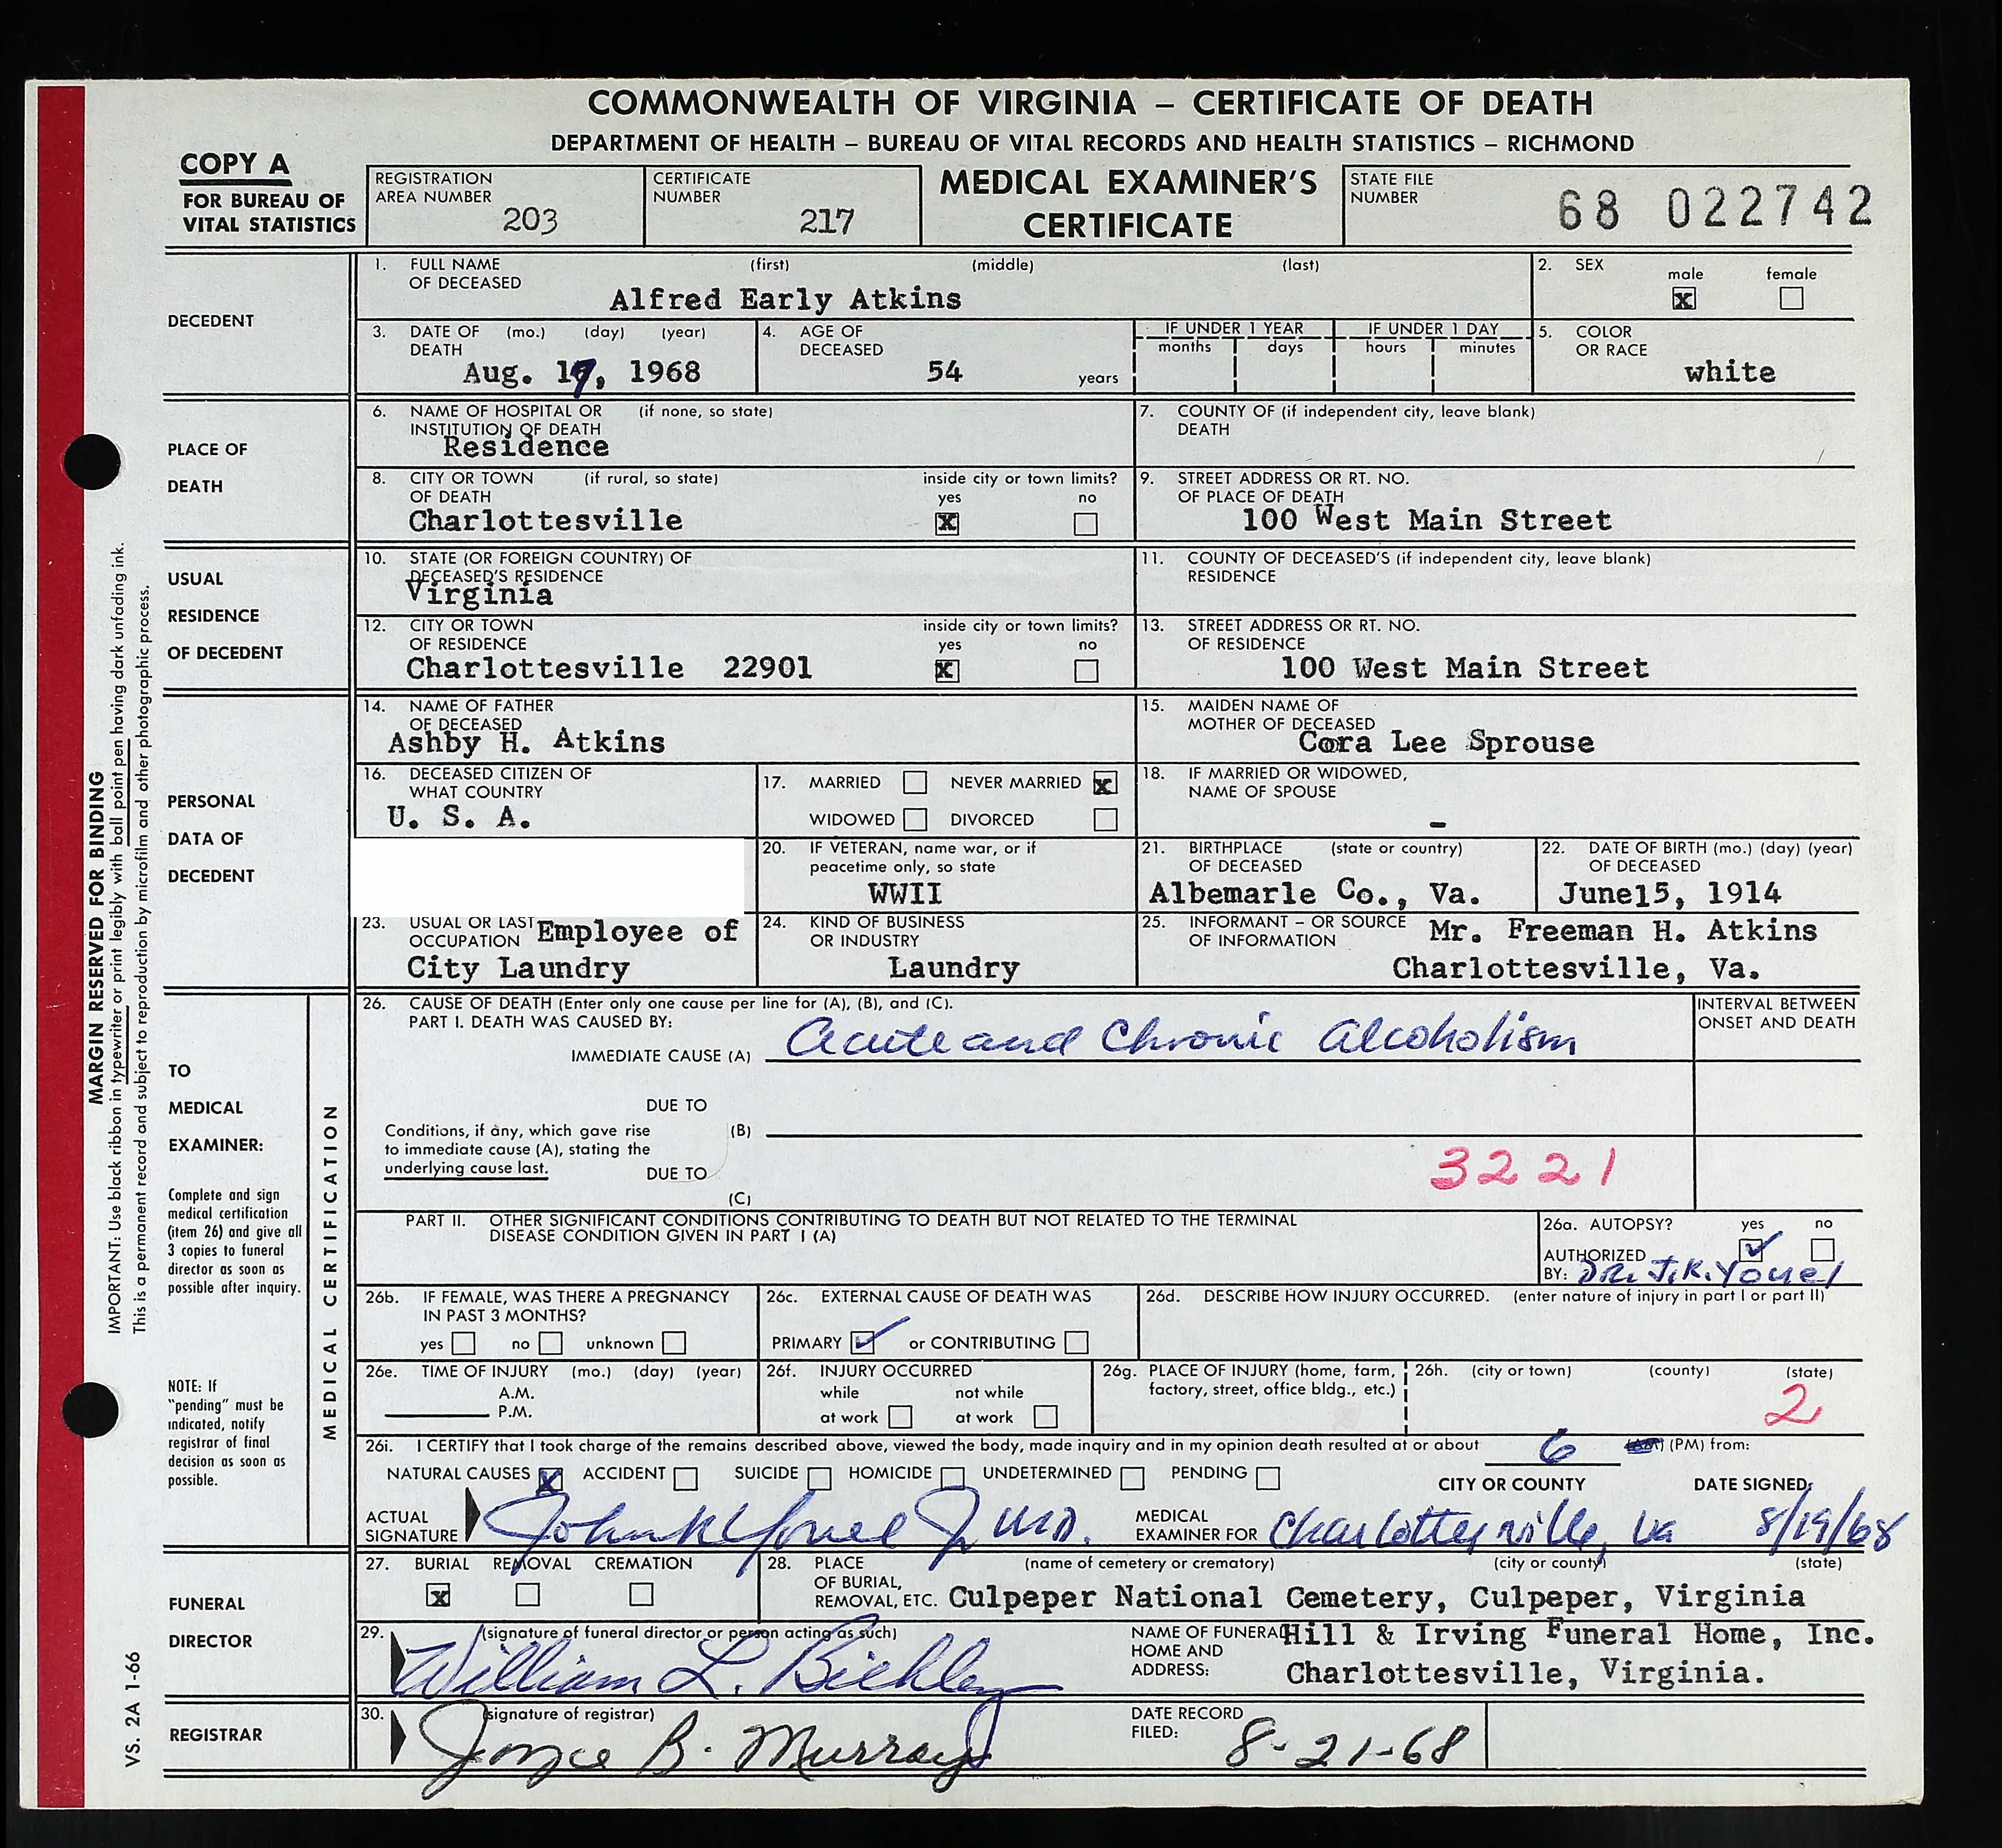 COMMONWEALTH OF VIRGINIA – CERTIFICATE OF DEATH
DEPARTMENT OF HEALTH – BUREAU OF VITAL RECORDS AND HEALTH STATISTICS – RICHMOND
COPY A
FOR BUREAU OF
VITAL STATISTICS
REGISTRATION
AREA NUMBER
203
CERTIFICATE
NUMBER
217
MEDICAL EXAMINER'S
CERTIFICATE
STATE FILE
NUMBER
68 022742
DECEDENT
1. FULL NAME (first) (middle) (last)
OF DECEASED
Alfred Early Atkins
2. SEX
male female
x
3. DATE OF (mo.) (day) (year)
DEATH
Aug. 17, 1968
4. AGE OF
DECEASED
54 years
IF UNDER 1 YEAR IF UNDER 1 DAY
months days hours minutes
5. COLOR
OR RACE
white
PLACE OF
DEATH
6. NAME OF HOSPITAL OR (if none, so state)
INSTITUTION OF DEATH
Residence
7. COUNTY OF (if independent city, leave blank)
DEATH
8. CITY OR TOWN (if rural, so state) inside city or town limits?
OF DEATH yes no
Charlottesville x
9. STREET ADDRESS OR RT. NO.
OF PLACE OF DEATH
100 West Main Street
USUAL
RESIDENCE
OF DECEDENT
10. STATE (OR FOREIGN COUNTRY) OF
DECEASED'S RESIDENCE
Virginia
11. COUNTY OF DECEASED'S (if independent city, leave blank)
RESIDENCE
12. CITY OR TOWN inside city or town limits?
OF RESIDENCE yes no
Charlottesville 22901 x
13. STREET ADDRESS OR RT. NO.
OF RESIDENCE
100 West Main Street
PERSONAL
DATA OF
DECEDENT
14. NAME OF FATHER
OF DECEASED
Ashby H. Atkins
15. MAIDEN NAME OF
MOTHER OF DECEASED
Cora Lee Sprouse
16. DECEASED CITIZEN OF
WHAT COUNTRY
U. S. A.
17. MARRIED NEVER MARRIED x
WIDOWED DIVORCED
18. IF MARRIED OR WIDOWED,
NAME OF SPOUSE
-
20. IF VETERAN, name war, or if
peacetime only, so state
WWII
21. BIRTHPLACE (state or country)
OF DECEASED
Albemarle Co., Va.
22. DATE OF BIRTH (mo.) (day) (year)
OF DECEASED
June15, 1914
23. USUAL OR LAST
OCCUPATION Employee of
City Laundry
24. KIND OF BUSINESS
OR INDUSTRY
Laundry
25. INFORMANT – OR SOURCE
OF INFORMATION Mr. Freeman H. Atkins
Charlottesville, Va.
TO
MEDICAL
EXAMINER:
Complete and sign
medical certification
(item 26) and give all
3 copies to funeral
director as soon as
possible after inquiry.
NOTE: If
"pending" must be
indicated, notify
registrar of final
decision as soon as
possible.
MEDICAL CERTIFICATION
26. CAUSE OF DEATH (Enter only one cause per line for (A), (B), and (C).
PART I. DEATH WAS CAUSED BY:
IMMEDIATE CAUSE (A) Acute and Chronic Alcoholism
INTERVAL BETWEEN
ONSET AND DEATH
DUE TO
Conditions, if any, which gave rise (B)
to immediate cause (A), stating the
underlying cause last. DUE TO
(C)
3221
PART II. OTHER SIGNIFICANT CONDITIONS CONTRIBUTING TO DEATH BUT NOT RELATED TO THE TERMINAL
DISEASE CONDITION GIVEN IN PART I (A)
26a. AUTOPSY? yes no
AUTHORIZED
BY: DR. J.K. Youel
26b. IF FEMALE, WAS THERE A PREGNANCY
IN PAST 3 MONTHS?
yes no unknown
26c. EXTERNAL CAUSE OF DEATH WAS
PRIMARY or CONTRIBUTING
26d. DESCRIBE HOW INJURY OCCURRED. (enter nature of injury in part I or part II)
26e. TIME OF INJURY (mo.) (day) (year)
A.M.
P.M.
26f. INJURY OCCURRED
while not while
at work at work
26g. PLACE OF INJURY (home, farm,
factory, street, office bldg., etc.)
26h. (city or town) (county) (state)
2
26i. I CERTIFY that I took charge of the remains described above, viewed the body, made inquiry and in my opinion death resulted at or about 6 (AM) (PM) from:
NATURAL CAUSES x ACCIDENT SUICIDE HOMICIDE UNDETERMINED PENDING
CITY OR COUNTY DATE SIGNED:
ACTUAL
SIGNATURE John K Youel Jr MD.
MEDICAL
EXAMINER FOR Charlottesville, Va 8/19/68
FUNERAL
DIRECTOR
27. BURIAL REMOVAL CREMATION
x
28. PLACE (name of cemetery or crematory) (city or county) (state)
OF BURIAL,
REMOVAL, ETC. Culpeper National Cemetery, Culpeper, Virginia
29. (signature of funeral director or person acting as such)
William L.
NAME OF FUNERAL Hill & Irving Funeral Home, Inc.
HOME AND
ADDRESS: Charlottesville, Virginia.
REGISTRAR
30. (signature of registrar)
Joyce B. Murray
DATE RECORD
FILED: 8-21-68
MARGIN RESERVED FOR BINDING
IMPORTANT: Use black ribbon in typewriter or print legibly with ball point pen having dark unfading ink.
This is a permanent record and subject to reproduction by microfilm and other photographic process.
VS. 2A 1-66